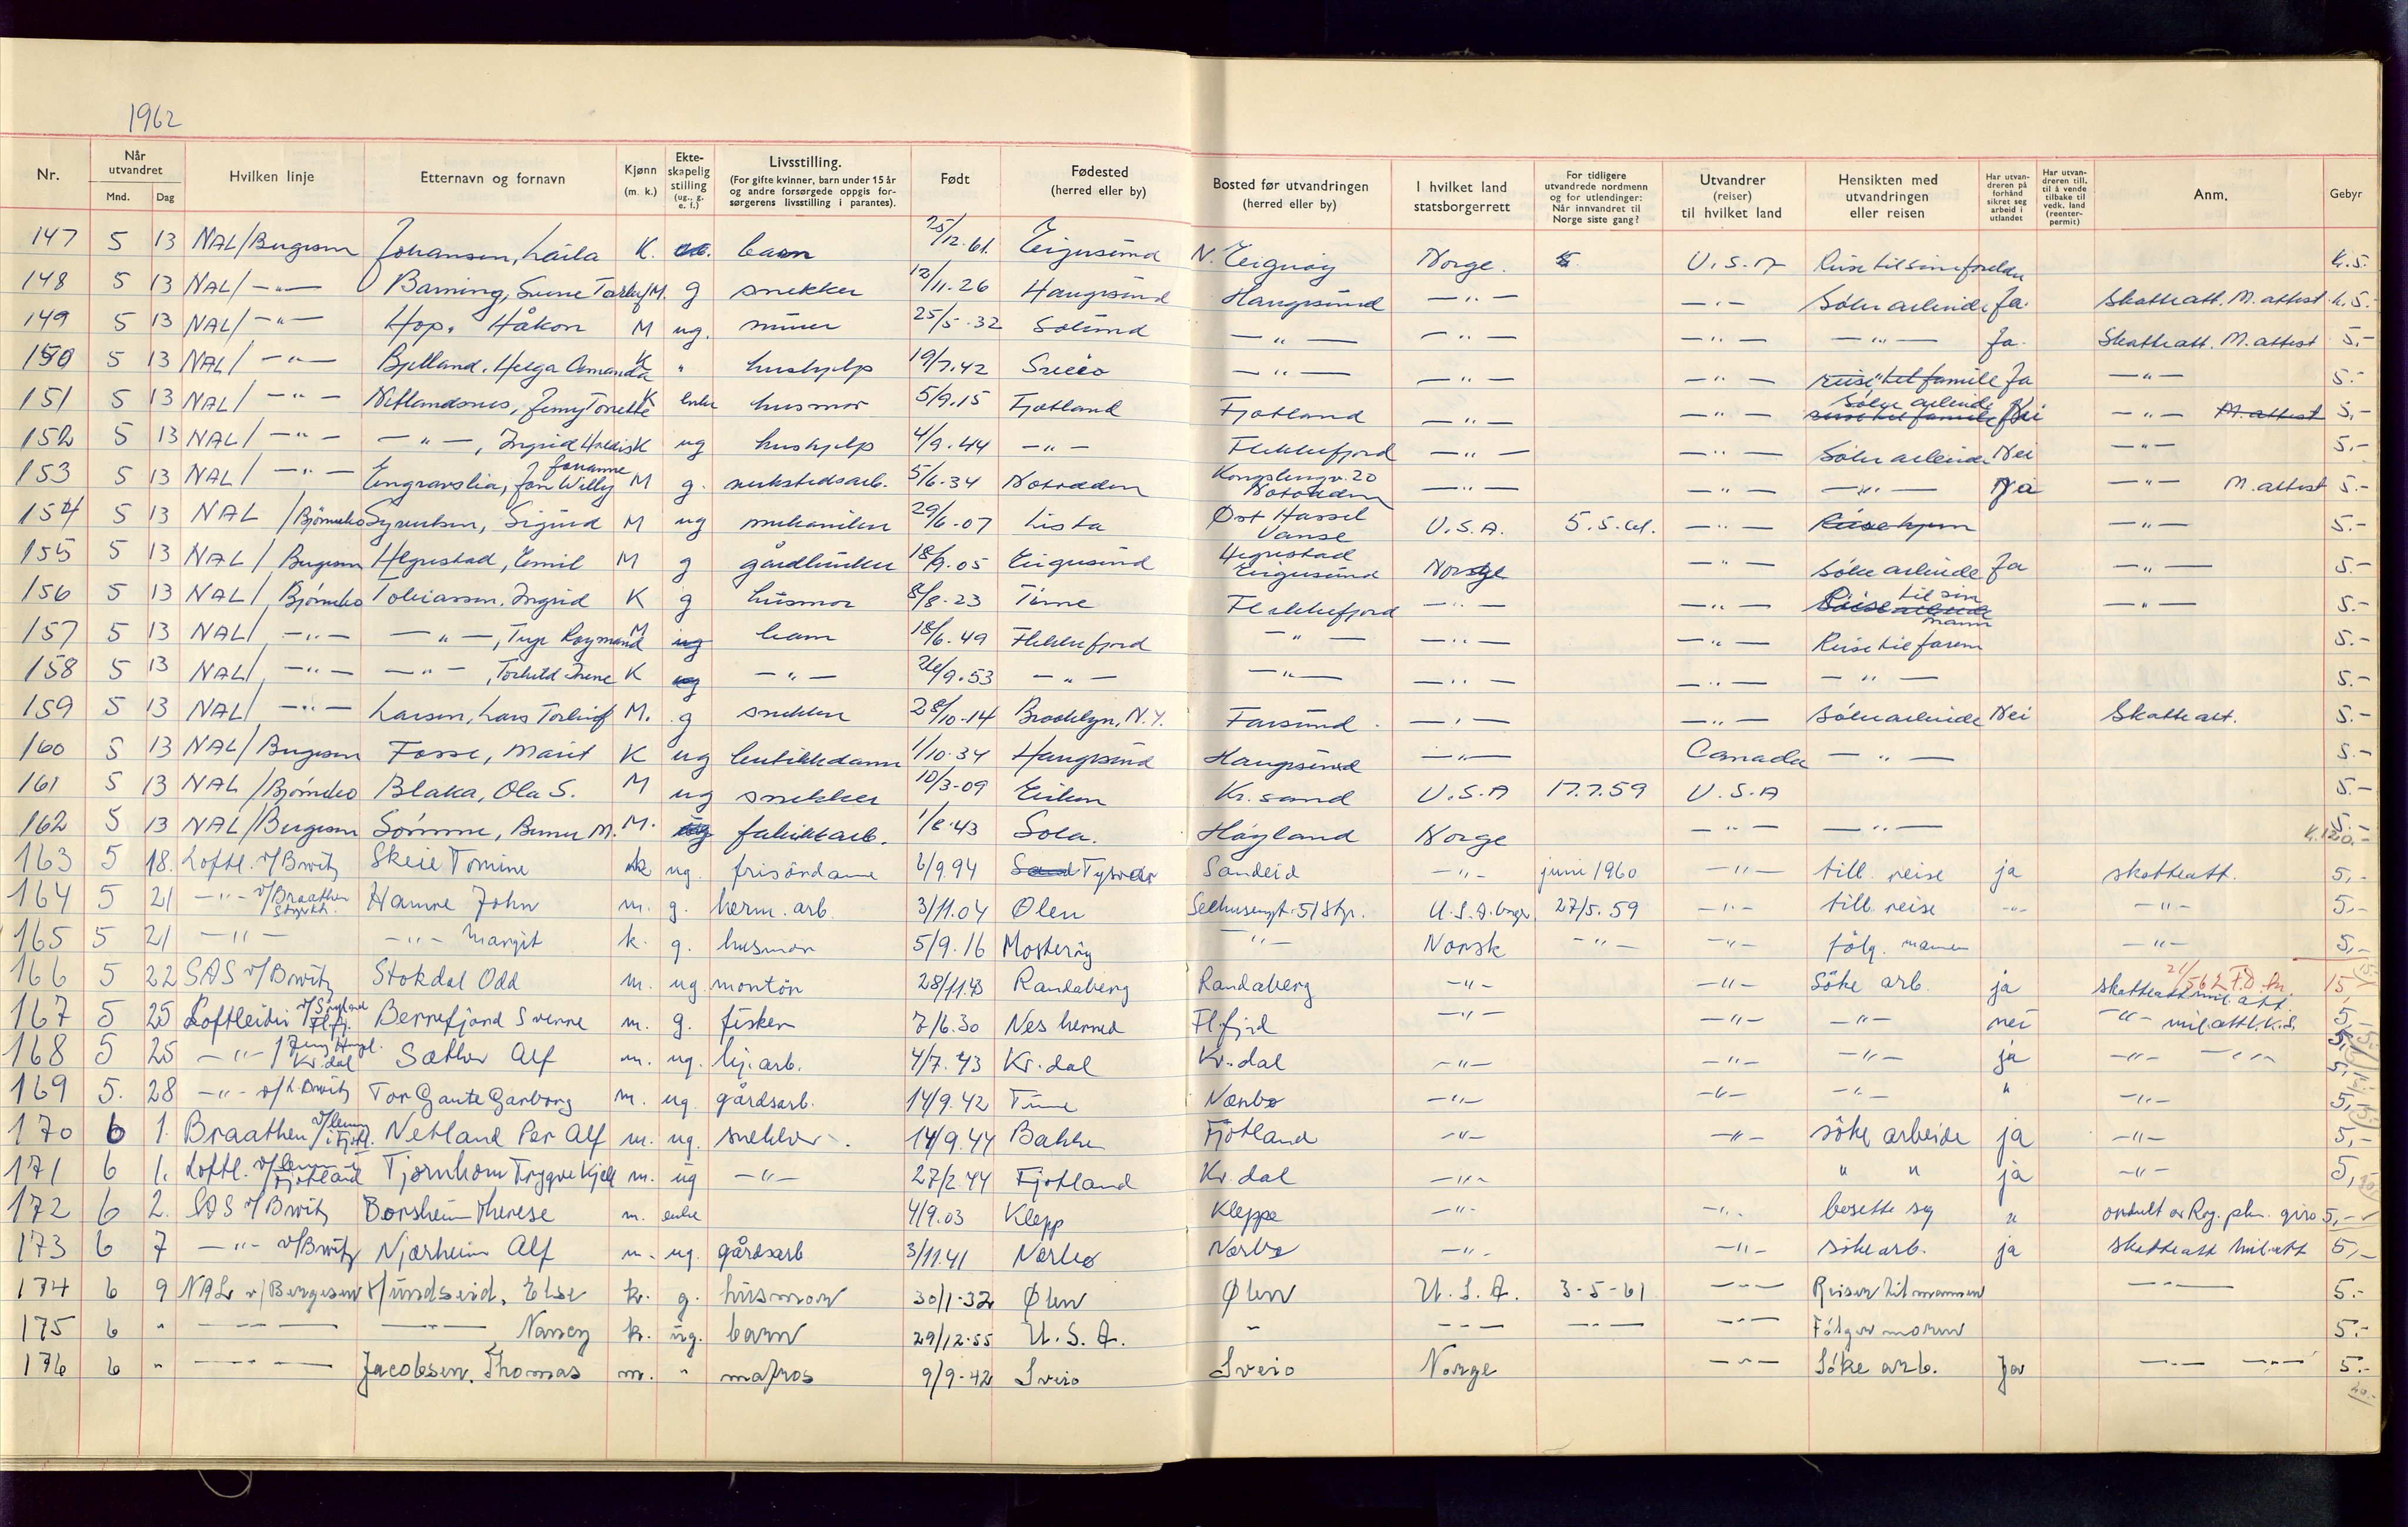 1962
Nr. Når utvandret Mnd. Dag Hvilken linje Etternavn og fornavn Kjønn (m. k.) Ekteskapelig stilling (ug., g. e. f.) Livsstilling. (For gifte kvinner, barn under 15 år og andre forsørgede oppgis forsørgerens livsstilling i parantes). Født Fødested (herred eller by) Bosted før utvandringen (herred eller by) I hvilket land statsborgerrett For tidligere utvandrede nordmenn og for utlendinger: Når innvandret til Norge siste gang? Utvandrer (reiser) til hvilket land Hensikten med utvandringen eller reisen Har utvandreren på forhånd sikret seg arbeid i utlandet Har utvandreren till. til å vende tilbake til vedk. land (reenterpermit) Anm. Gebyr
147 5 13 NAL/Bergesen Johansen, Laila K. barn 25/12.61. Eigersund N. Eigerøy Norge. U.S.A Reise til sine foreldre k. 5.-
148 5 13 NAL/ -"- Barning, Sven Torleif M. g snekker 12/11.26 Haugesund Haugesund -"- -"- Søke arbeide Ja. Skatteatt. M. attest k. 5.-
149 5 13 NAL/ -"- Hop, Håkon M ug. miner 25/5.32 Solund -"- -"- -"- -"- Ja. Skatteatt. M. attest 5.-
150 5 13 NAL/ -"- Bjelland, Helga Amanda K " hushjelp 19/7.42 Sveio -"- -"- -"- reise til familie Ja -"- 5.-
151 5 13 NAL/ -"- Netlandsnes, Jenny Tonette K enke husmor 5/9.15 Fjotland Fjotland -"- -"- Søke arbeide reise til familie Nei -"- M. attest 5.-
152 5 13 NAL/ -"- -"-, Ingrid K ug hushjelp 4/9.44 -"- Flekkefjord -"- -"- Søke arbeide Nei -"- 5.-
153 5 13 NAL/ -"- Engravslia, Jan Willy M g. verkstedsarb. 5/6.34 Notodden Kongsbergv. 20 Notodden -"- -"- -"- Ja -"- M. attest 5.-
154 5 13 NAL /Bjørnebo Syvertsen, Sigurd M ug mekaniker 29/6.07 Lista Øst Hassel Vanse U.S.A. 5.5.61. -"- Reise hjem -"- 5.-
155 5 13 NAL / Bergesen Hegrestad, Emil M g gårdbruker 18/9.05 Eigersund Hegrestad Eigersund Norge -"- Søke arbeide Ja -"- 5.-
156 5 13 NAL/ Bjørnebo Tobiassen, Ingrid K g husmor 8/8.23 Time Flekkefjord -"- -"- Reise til sin mann -"- 5.-
157 5 13 NAL/ -"- -"-, Terje Raymond M ug barn 18/6.49 Flekkefjord -"- -"- -"- Reise til faren 5.-
158 5 13 NAL/ -"- -"-, Torhild Irene K ug -"- 26/9.53 -"- -"- -"- -"- -"- 5.-
159 5 13 NAL/ -"- Larsen, Lars Torleif M. g snekker 28/10.14 Brooklyn, N.Y. Farsund -"- -"- Søke arbeide Nei Skatteatt. 5.-
160 5 13 NAL/Bergesen Fosse, Marit K ug butikkdame 1/10.34 Haugesund Haugesund -"- Canada -"- 5.-
161 5 13 NAL /Bjørnebo Blaka, Ola S. M ug snekker 10/3-09 Eiken Kr. sand U.S.A 17.7.59 U.S.A 5.-
162 5 13 NAL/Bergesen Sømme, M. M. ug fabrikkarb. 1/6.43 Sola. Høyland Norge -"- -"- 5.-
163 5 18. Loftl. v/Brwitz Skeie Tomine k ug. frisördame 6/9.94 Tysvær Sandeid -"- juni 1960 -"- till. reise ja skatteatt. 5,-
164 5 21 -"- v/Braathen Styrkh. Hamre John m. g. herm. arb. 3/11.04 Ølen Seehusengt. 51 Stgr. U.S.A. 27/5.59 -"- till. reise -"- -"- 5,-
165 5 21 -"- -"- Margit k. g. husmor 5/9.16 Mosterøy -"- Norsk -"- -"- fölg. mannen -"- 5,-
166 5 22 SAS v/Brwitz Stokdal Odd m. ug. montör 28/11.43 Randaberg Randaberg -"- -"- Söke arb. ja skatteatt mil. att. 15,
167 5 25 Loftleidir Fl.fj. Berrefjord Sverre m. g. fisker 7/6.30 Nes herred Fl.fjd -"- -"- -"- nei -"- mil.att. 5,-
168 5 25 -"- Kr. dal Sæther Alf m. ug. hj. arb. 4/7.43 Kr. dal Kr. dal -"- -"- -"- ja -"- -"- 5,-
169 5. 28 -"- Brwitz Tor Gaute Garborg m. ug. gårdsarb. 14/9.42 Time Nærbø -"- -"- -"- " -"- 5,-
170 6 1. Braathen Netland Per Alf m. ug. snekker. 14/9.44 Bakke Fjotland -"- -"- söke arbeide ja -"- 5,-
171 6 1. Loftl. Fjotland Tjørnhom Trygve Kjell m. ug -"- 27/2.44 Fjotland Kr. dal -"- " " ja -"- 5,
172 6 2. SAS v/Brwitz Borsheim Therese m. enke 4/9.03 Klepp Kleppe -"- -"- bosette seg " giro 5,-
173 6 7 -"- v/Brwitz Njærheim Alf m. ug. gårdsarb 3/11.41 Nærbø Nærbø -"- -"- söke arb. ja skatteatt mil.att 5,-
174 6 9 NAL v/Bergesen Hundseid, Else k. g. husmor 30/1-32 Ølen Ølen U.S.A. 3-5-61 -"- Reiser til mannen -"- 5.-
175 6 " -"- -"- Nancy k. ug. barn 29/12-55 U.S.A. " -"- -"- -"- Følger moren 5.-
176 6 " -"- Jacobsen, Thomas m. " matros 9/9-42 Sveio Sveio Norge -"- Søke arb. Ja -"- -"- 5.-